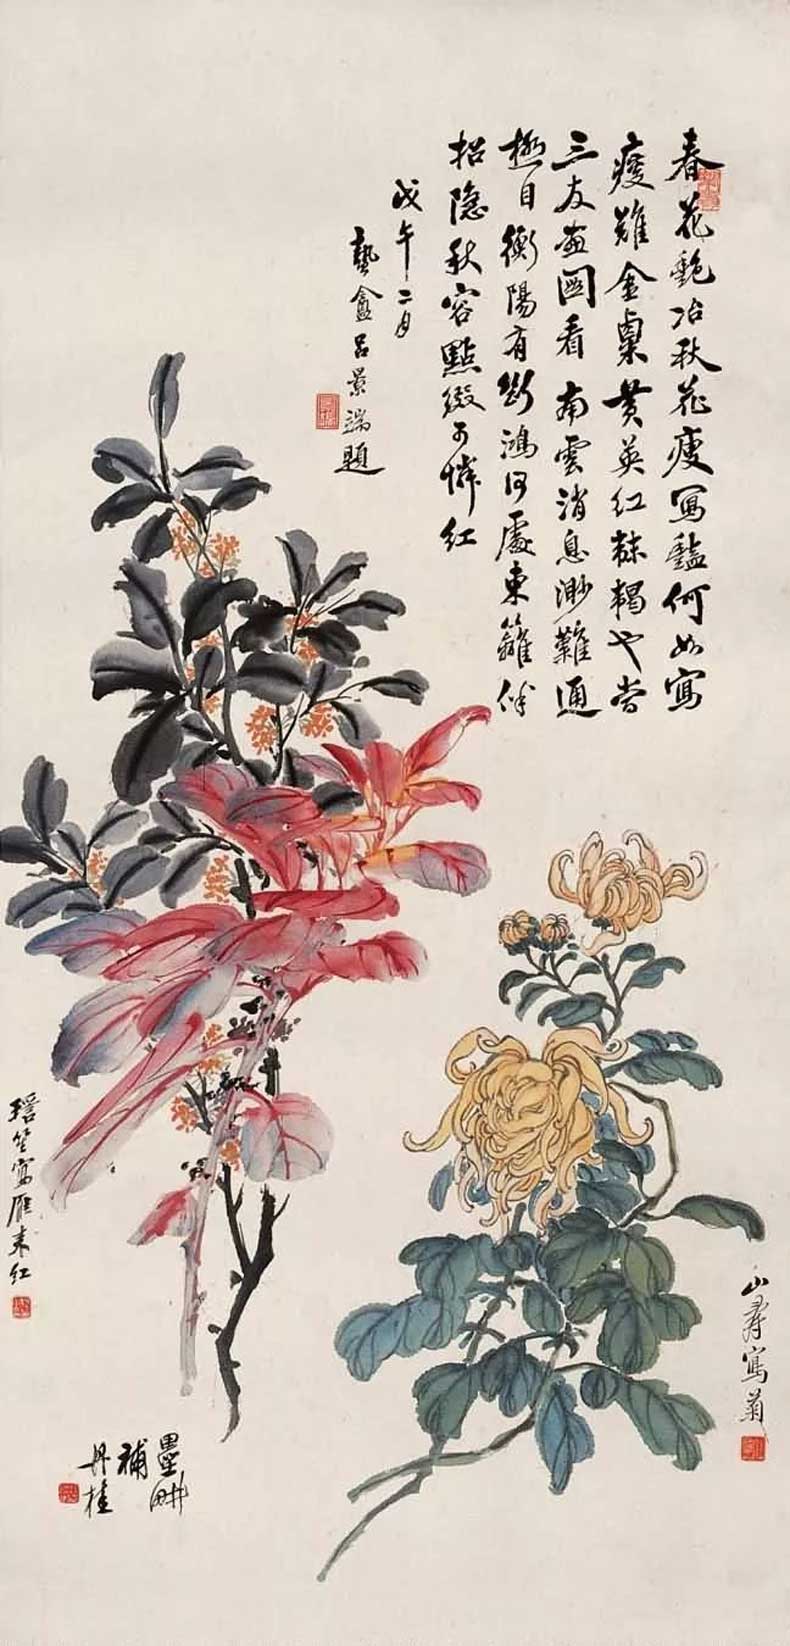 春花艷冶秋花瘦寫豔何如寫
瘦難金粟黃英紅
三友畫圖看南雲消息渺難通
極目衡陽有斷鴻何處東籬伴
招隱秋容點綴可憐紅
戊午二月
藝盦呂景端題
瑶笙寫雁來红
山壽寫菊
墨畊
補
丹桂